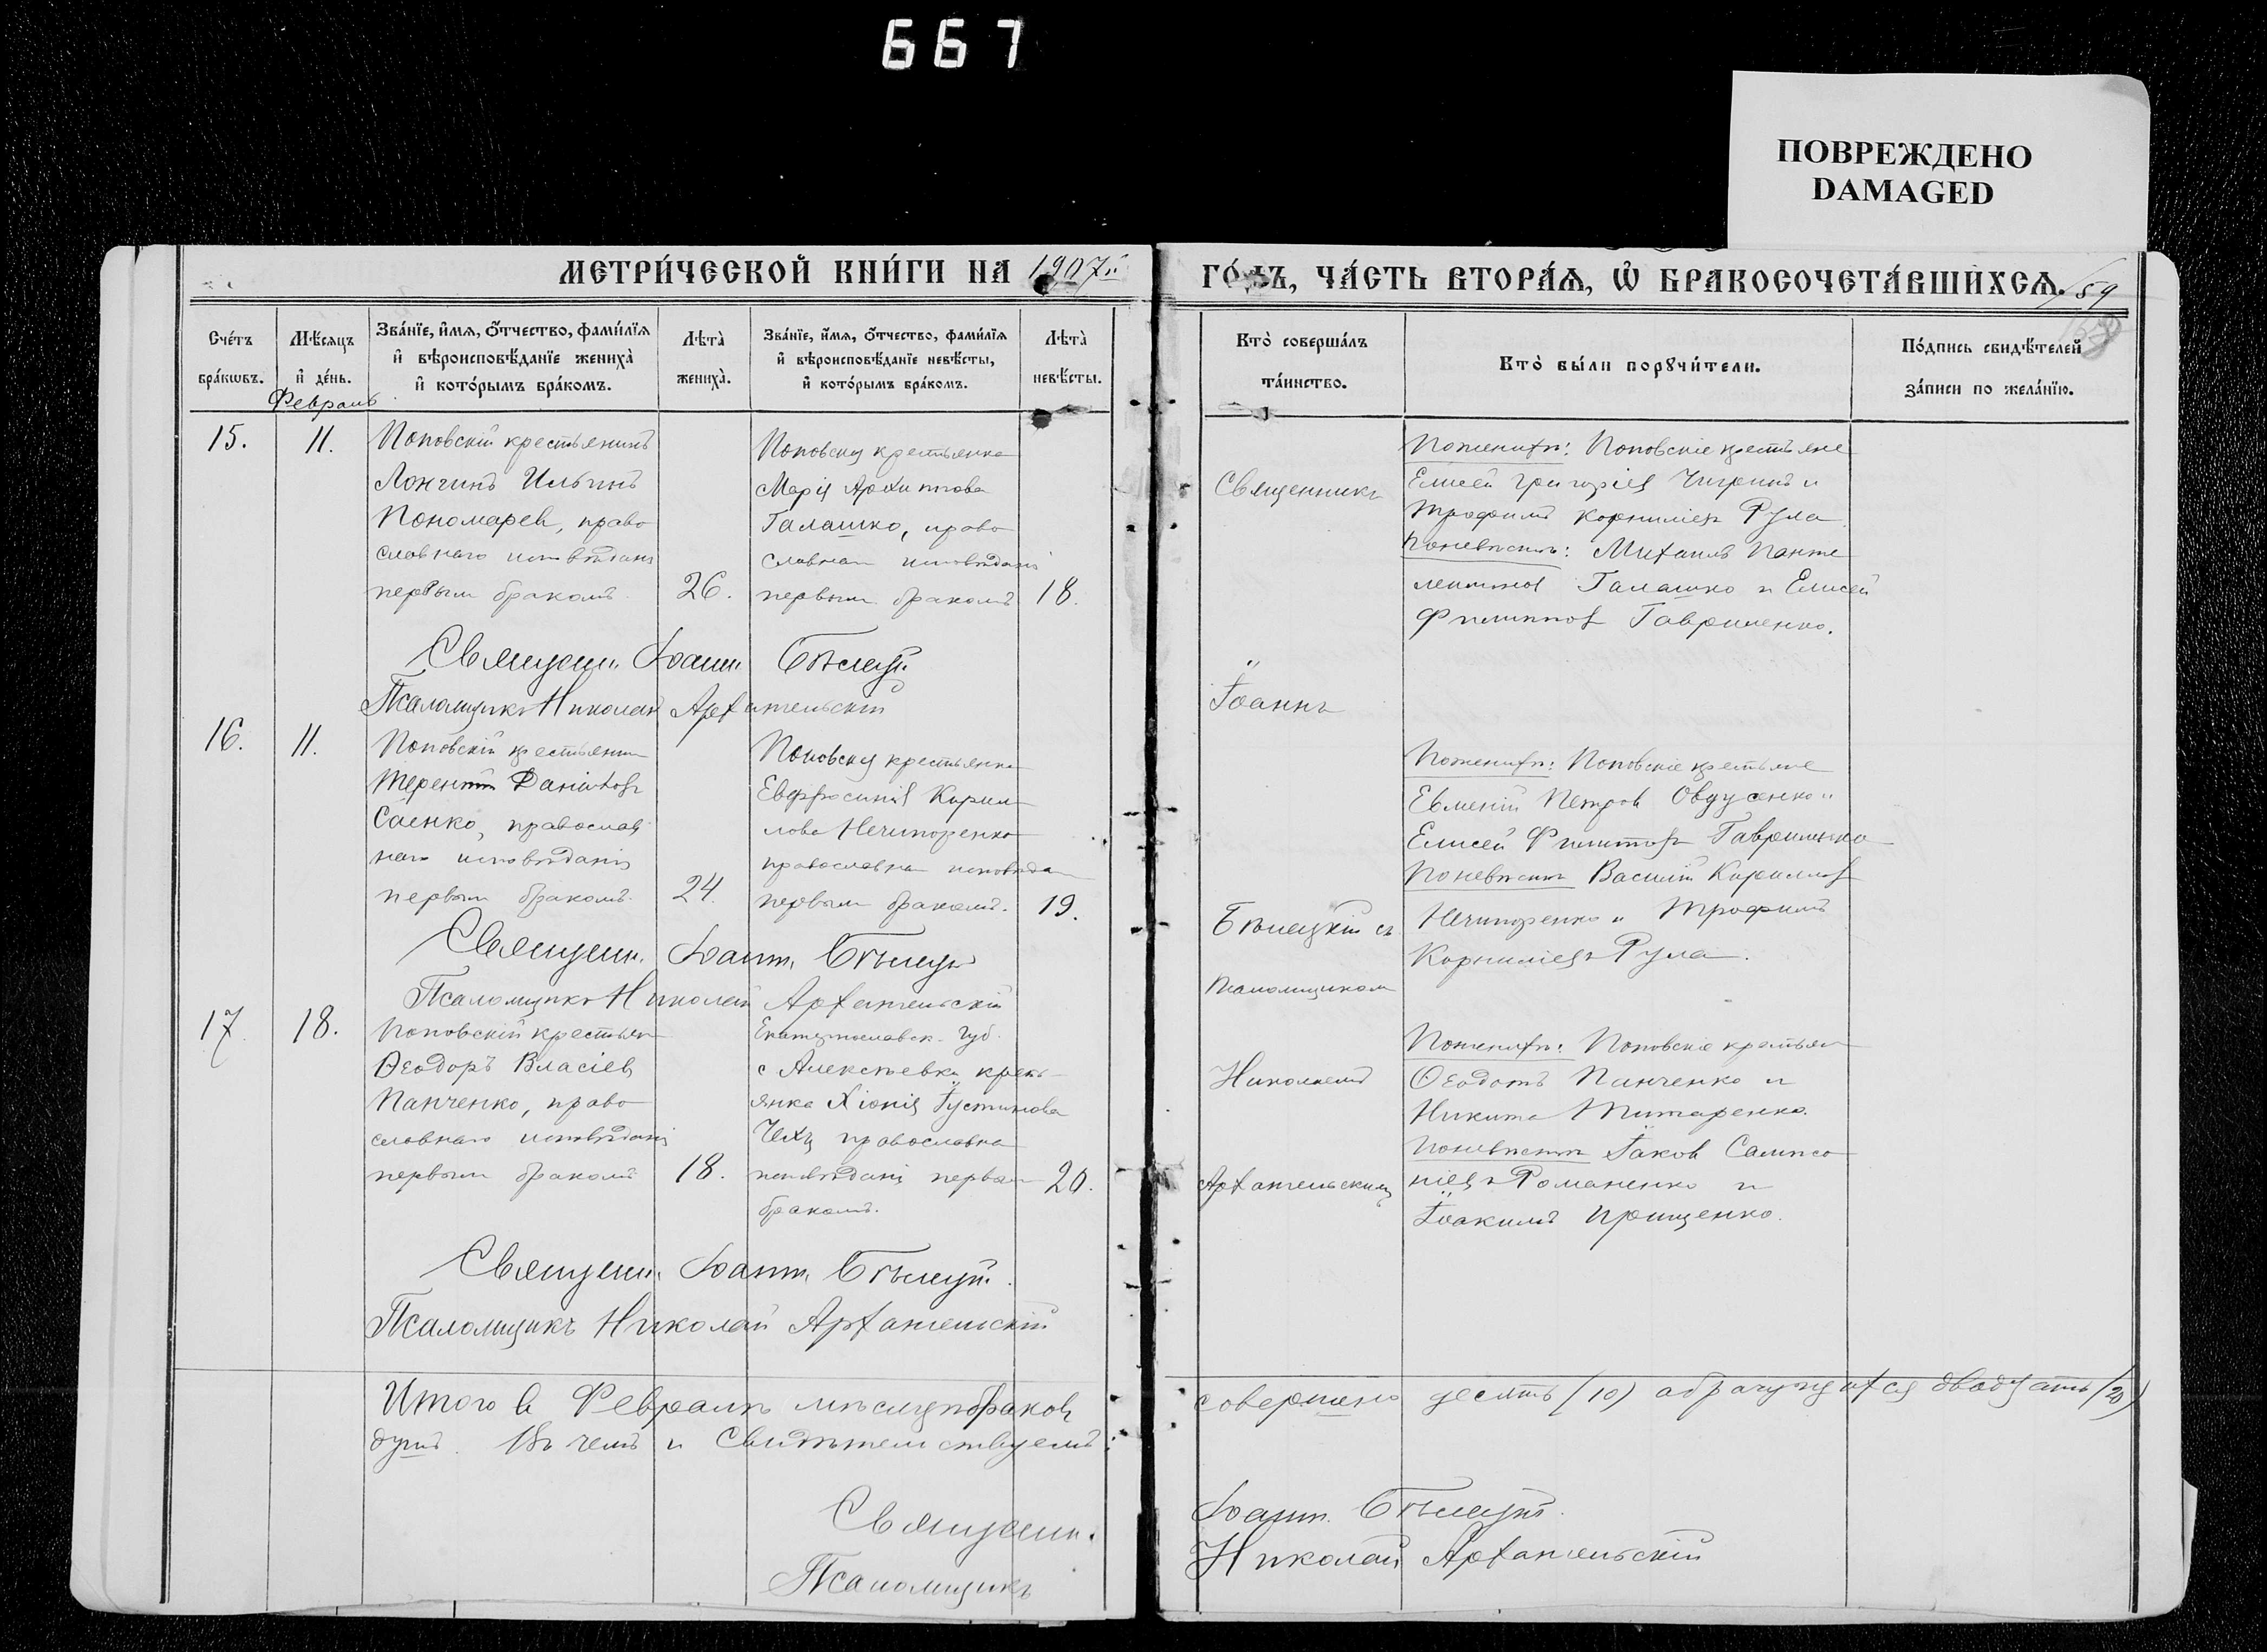 667
ПОВРЕЖДЕНО
DAMAGED
МЕТРИ́ЧЕСКОЙ КНИ́ГИ НА 1907й
ГО́ДЪ, ЧА́СТЬ ВТОРА́Ѧ, Ѡ҆ БРАКОСОЧЕТА́ВШИХСѦ.
159
Сче́тъ бра́кѡвъ.
Мѣ́сяцъ и҆ де́нь.
Зва́нїе, и҆́мя, ѻ҆́тчество, фами́лїя и҆ вѣроисповѣ́данїе жениха̀ и҆ кото́рымъ бра́комъ.
Лѣта̀ жениха̀.
Зва́нїе, и҆́мя, ѻ҆́тчество, фами́лїя и҆ вѣроисповѣ́данїе невѣ́сты, и҆ кото́рымъ бра́комъ.
Лѣта̀ невѣ́сты.
Кто̀ соверша́лъ та́инство.
Кто̀ бы́ли порꙋчи́тели.
По́дпись свидѣ́телей за́писи по жела́нїю.
Февраль
15.
11.
Поповскій крестьянинъ
Лонгинъ Ильинъ
Пономарев, право
славнаго исповѣдані
первым бракомъ
26.
Поповская крестьянка
Марія Архипова
Галашко, право
славнаго исповѣдані
первым бракомъ
18.
Священникъ
Поженихѣ: Поповскіе крестьяне
Елисей Григоріев Чигринъ и
Трофимъ Корниліев Рула
Поневѣстѣ: Михаилъ Панте
леимонов Галашко и Елисей
Филиппов Гавриленко.
Священ. Іоанн Бѣлецкій
Псаломщикъ Николай Архангельскій
Іоаннъ
16.
11.
Поповскій крестьянин
Терентій Даніилов
Саенко, православ
наго исповѣданія
первым бракомъ.
24.
Поповская крестьянка
Евфросинія Кирил
лова Нечипоренко
православна исповѣда
первым бракомъ.
19.
Поженихѣ: Поповскіе крестьяне
Евменій Петров Овдусенко и
Елисей Филиппов Гавриленко
Поневѣстѣ Василій Кириллов
Нечипоренко и Трофимъ
Корниліевъ Рула.
Бѣлецкій съ
Священ. Іоанн Бѣлецкій
Псаломщикъ Николай Архангельскій
Псаломщиком
17.
18.
Поповскій крестьян
Ѳеодоръ Власіев
Панченко, право
славнаго исповѣдані
первым бракомъ
18.
Екатеринославск. губ.
с Алексѣевки крест
янка Хіонія Іустинова
Чехъ православна
исповѣдані первым
бракомъ.
20.
Николаемъ
Архангельскимъ
Поженихѣ: Поповскіе крестьян
Ѳеодотъ Панченко и
Никита Титаренко.
Поневѣстѣ Іаков Сампсо
ніевъ Романенко и
Іоакимъ Прищенко.
Священ. Іоанн Бѣлецкій.
Псаломщикъ Николай Архангельскій
Итого в Февралѣ мѣсяцѣ браков совершено десять (10) а брачущихся двадцать (20)
душъ. Въ чемъ и свидѣтельствуемъ:
Священ. Іоанн Бѣлецкій.
Псаломщикъ Николай Архангельскій